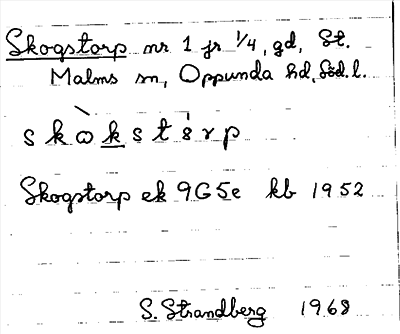 Skogstorp nr 1 fr 1/4, gd, St.
Malms sn, Oppunda hd, Söd. l.
skωkstörp
Skogstorp ek 9G5e kb 1952
S. Strandberg 1968